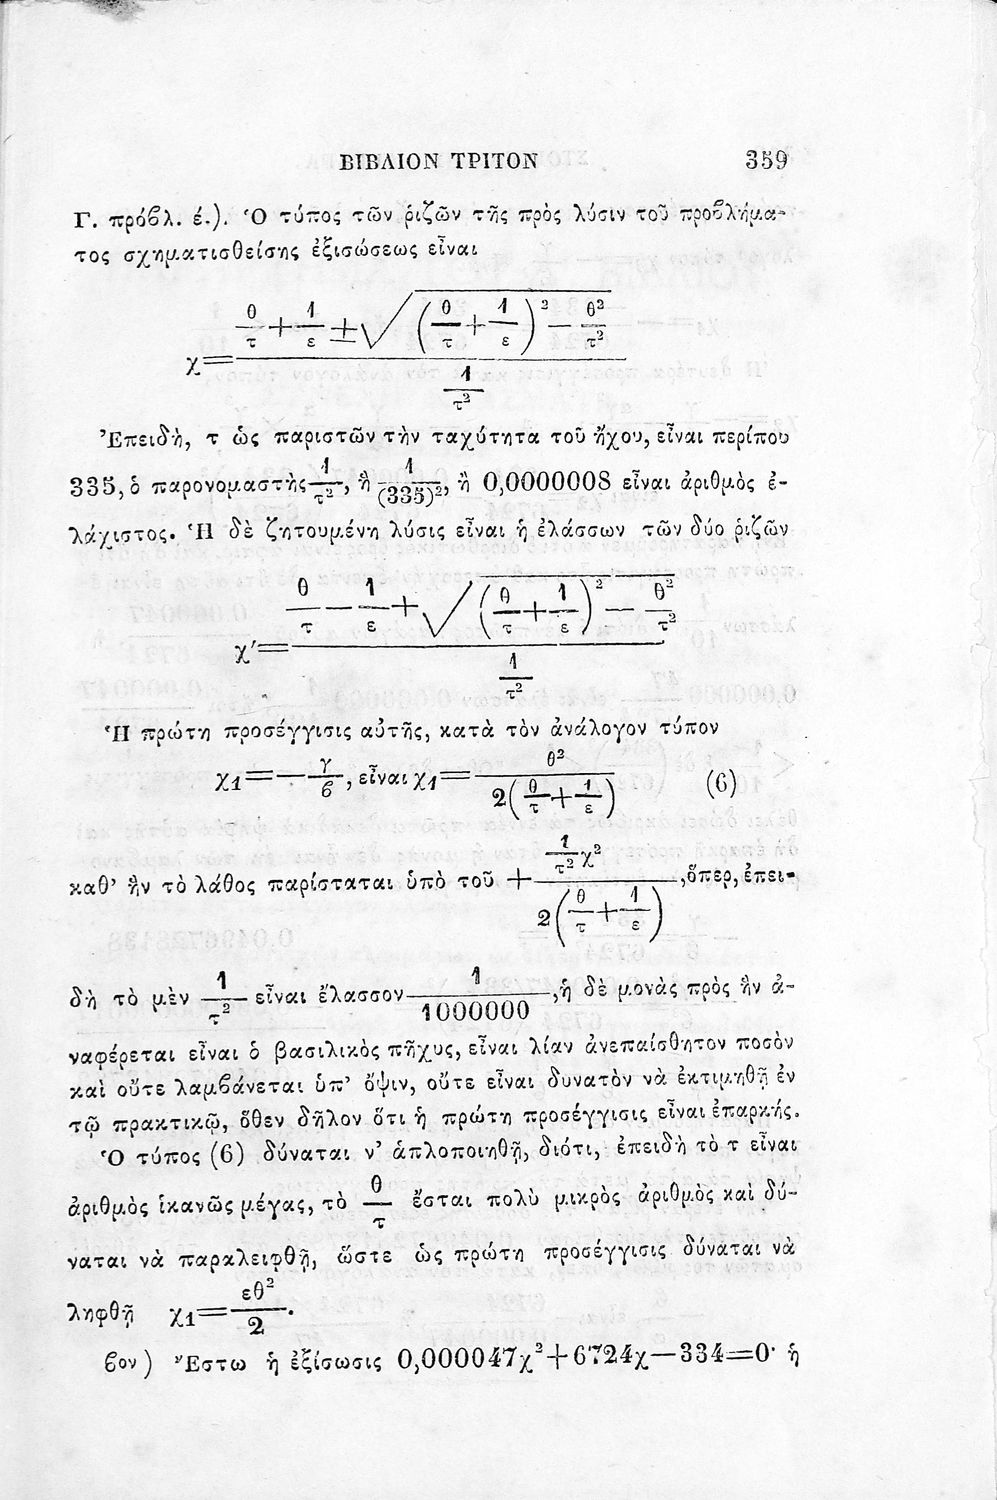 ΒΙΒΛΙΟΝ ΤΡΙΤΟΝ 359
Γ. πρόβλ. έ.). Ὁ τύπος τῶν ῥιζῶν τῆς πρὸς λύσιν τοῦ προβλήμα-
τος σχηματισθείσης ἐξισώσεως εἶναι
χ = (θ/τ + 1/ε ± √((θ/τ + 1/ε)² — θ²/τ²)) / (1/τ²)
Ἐπειδὴ, τ ὡς παριστῶν τὴν ταχύτητα τοῦ ἤχου, εἶναι περίπου
335, ὁ παρονομαστὴς 1/τ², ἢ 1/(335)², ἢ 0,0000008 εἶναι ἀριθμὸς ἐ-
λάχιστος. Ἡ δὲ ζητουμένη λύσις εἶναι ἡ ἐλάσσων τῶν δύο ῥιζῶν
χ′ = (θ/τ — 1/ε + √((θ/τ + 1/ε)² — θ²/τ²)) / (1/τ²)
Ἡ πρώτη προσέγγισις αὐτῆς, κατὰ τὸν ἀνάλογον τύπον
χ₁ = — γ/β, εἶναι χ₁ = θ²/(2(θ/τ + 1/ε)) (6)
καθ’ ἣν τὸ λάθος παρίσταται ὑπὸ τοῦ + (1/τ² χ²)/(2(θ/τ + 1/ε)), ὅπερ, ἐπει-
δὴ τὸ μὲν 1/τ² εἶναι ἔλασσον 1/1000000, ἡ δὲ μονὰς πρὸς ἣν ἀ-
ναφέρεται εἶναι ὁ βασιλικὸς πῆχυς, εἶναι λίαν ἀνεπαίσθητον ποσὸν
καὶ οὔτε λαμβάνεται ὑπ’ ὄψιν, οὔτε εἶναι δυνατὸν νὰ ἐκτιμηθῇ ἐν
τῷ πρακτικῷ, ὅθεν δῆλον ὅτι ἡ πρώτη προσέγγισις εἶναι ἐπαρκής.
Ὁ τύπος (6) δύναται ν’ ἁπλοποιηθῇ, διότι, ἐπειδὴ τὸ τ εἶναι
ἀριθμὸς ἱκανῶς μέγας, τὸ θ/τ ἔσται πολὺ μικρὸς ἀριθμὸς καὶ δύ-
ναται νὰ παραλειφθῇ, ὥστε ὡς πρώτη προσέγγισις δύναται νὰ
ληφθῇ χ₁ = εθ²/2.
βον) Ἔστω ἡ ἐξίσωσις 0,000047χ² + 6724χ — 334 = 0· ἡ